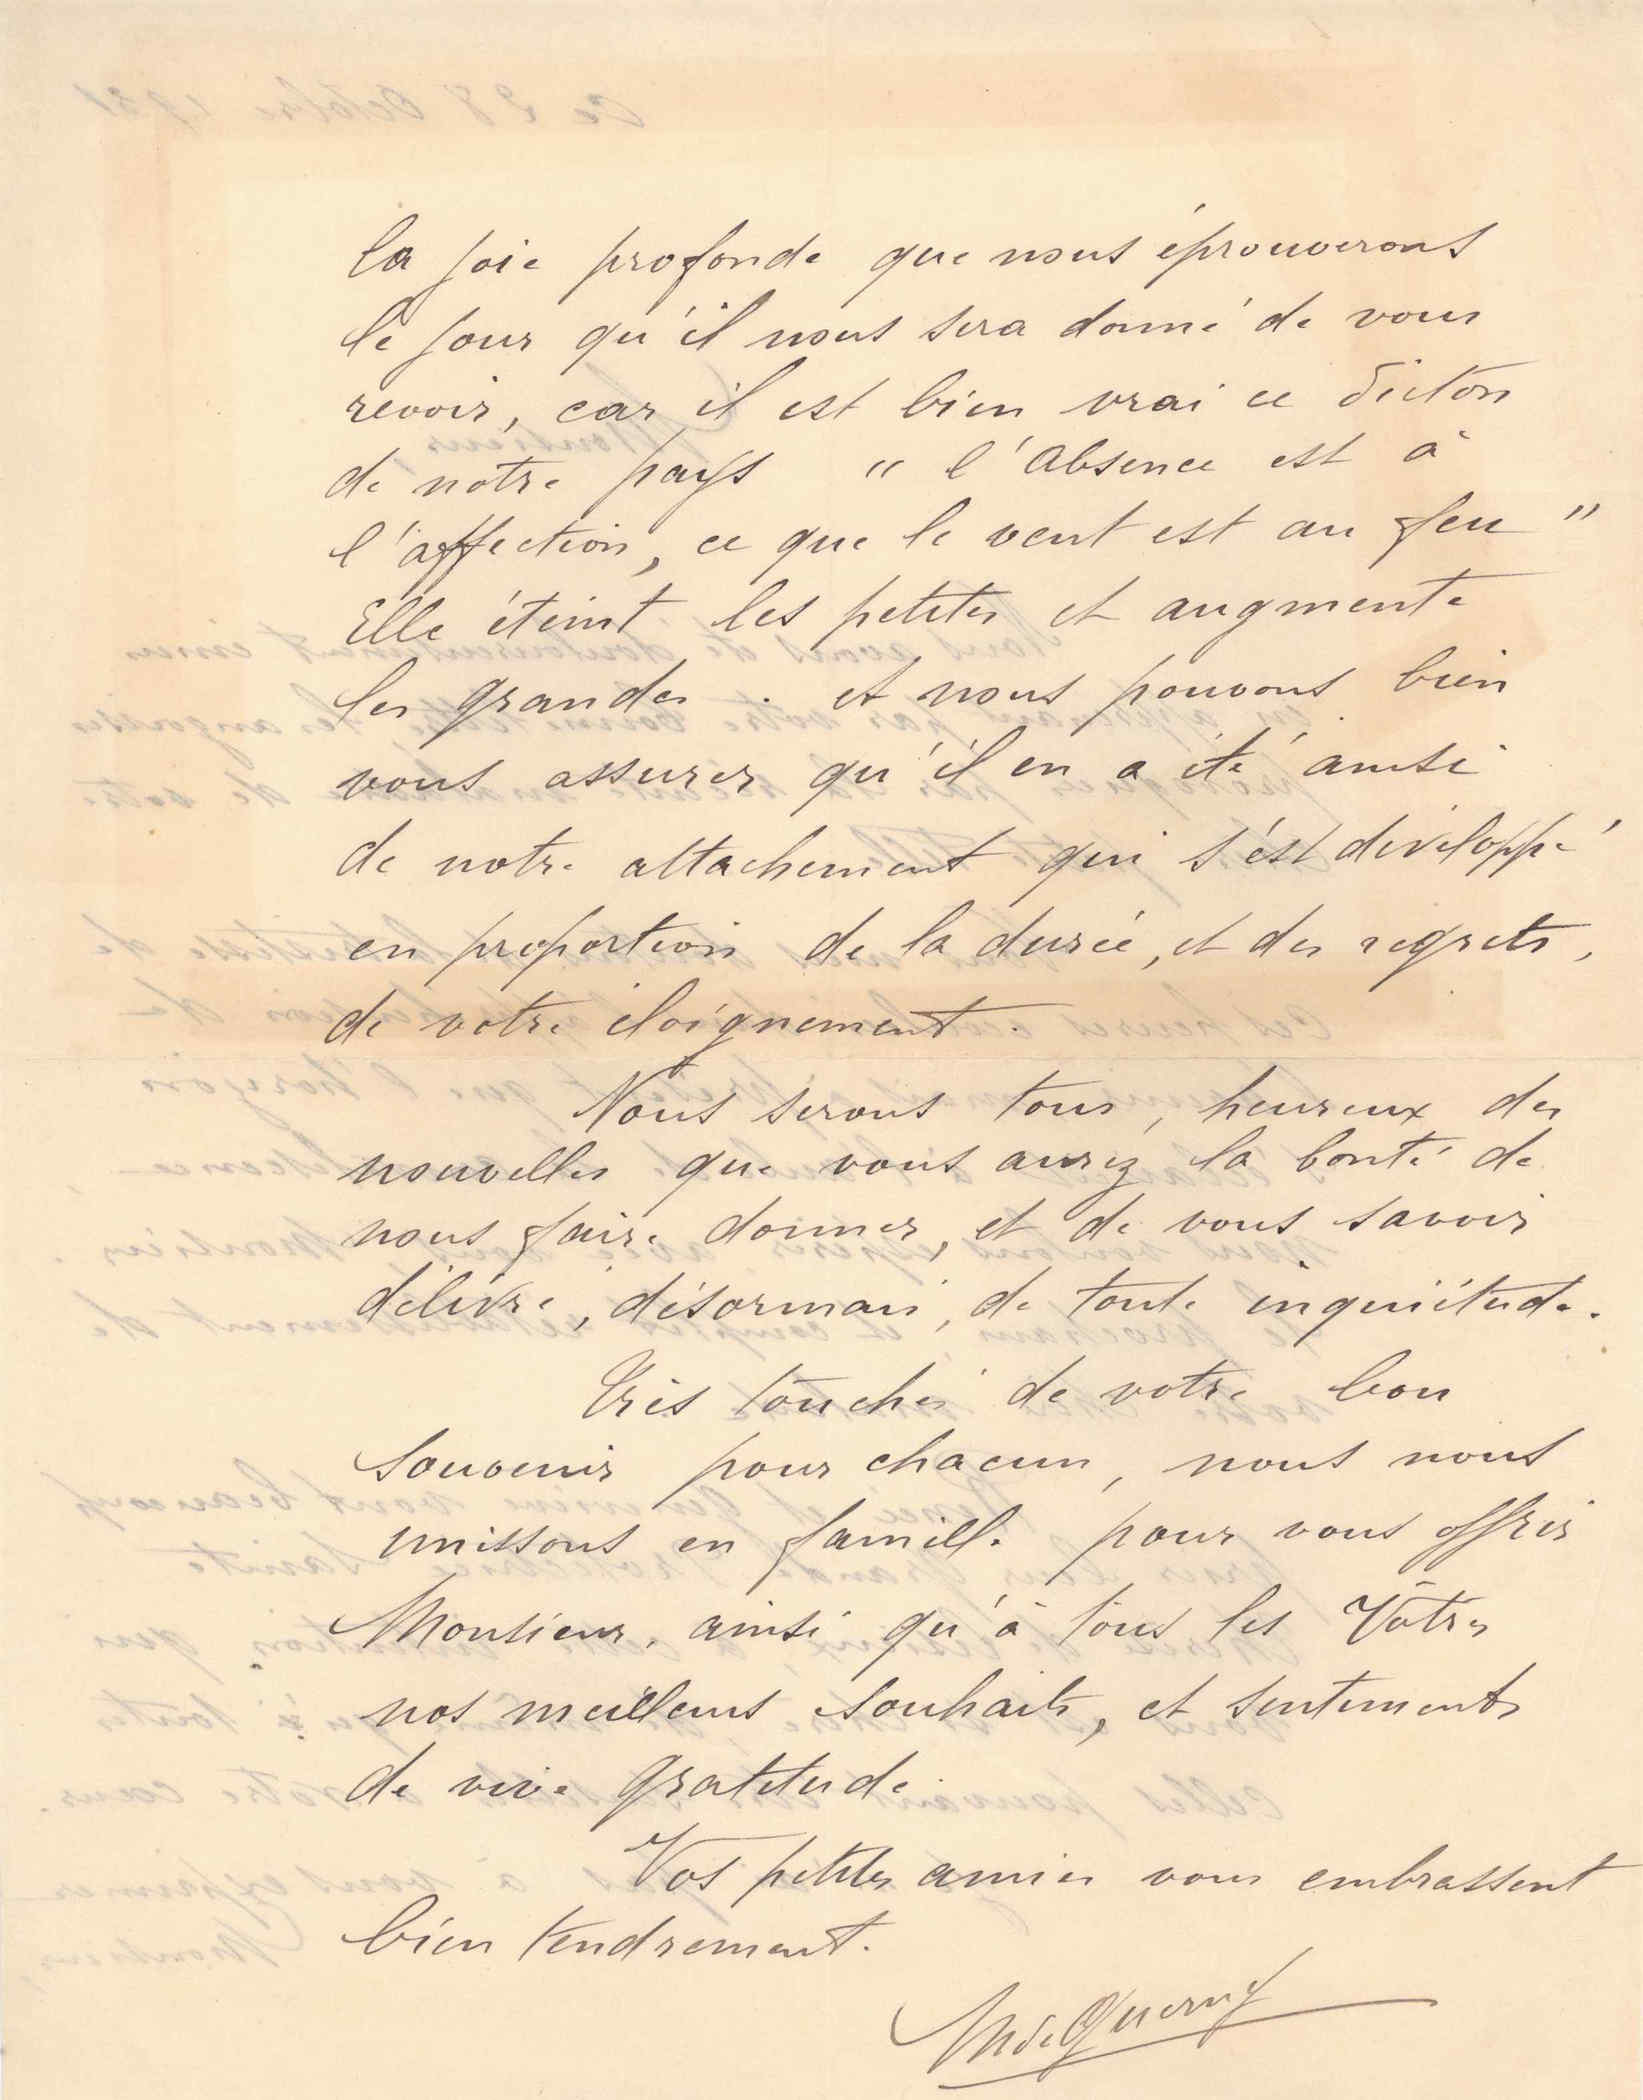 la joie profonde que nous éprouverons
le jour qu'il nous sera donné de vous
revoir, car il est bien vrai ce dicton
de notre pays " l'absence est à
l'affection, ce que le vent est au feu "
Elle éteint les petites et augmente
les grandes. et nous pouvons bien
vous assurer qu'il en a été ainsi
de notre attachement qui s'est développé
en proportion de la durée, et des regrets,
de votre éloignement.
Nous serons tous, heureux des
nouvelles que vous aurez la bonté de
nous faire donner, et de vous savoir
délivré, désormais, de toute inquiétude.
Très touchés de votre bon
souvenir pour chacun, nous nous
unissons en famille pour vous offrir
Monsieur, ainsi qu'à tous les Vôtres
nos meilleurs souhaits, et sentiments
de vive gratitude.
Vos petites amies vous embrassent
bien tendrement.